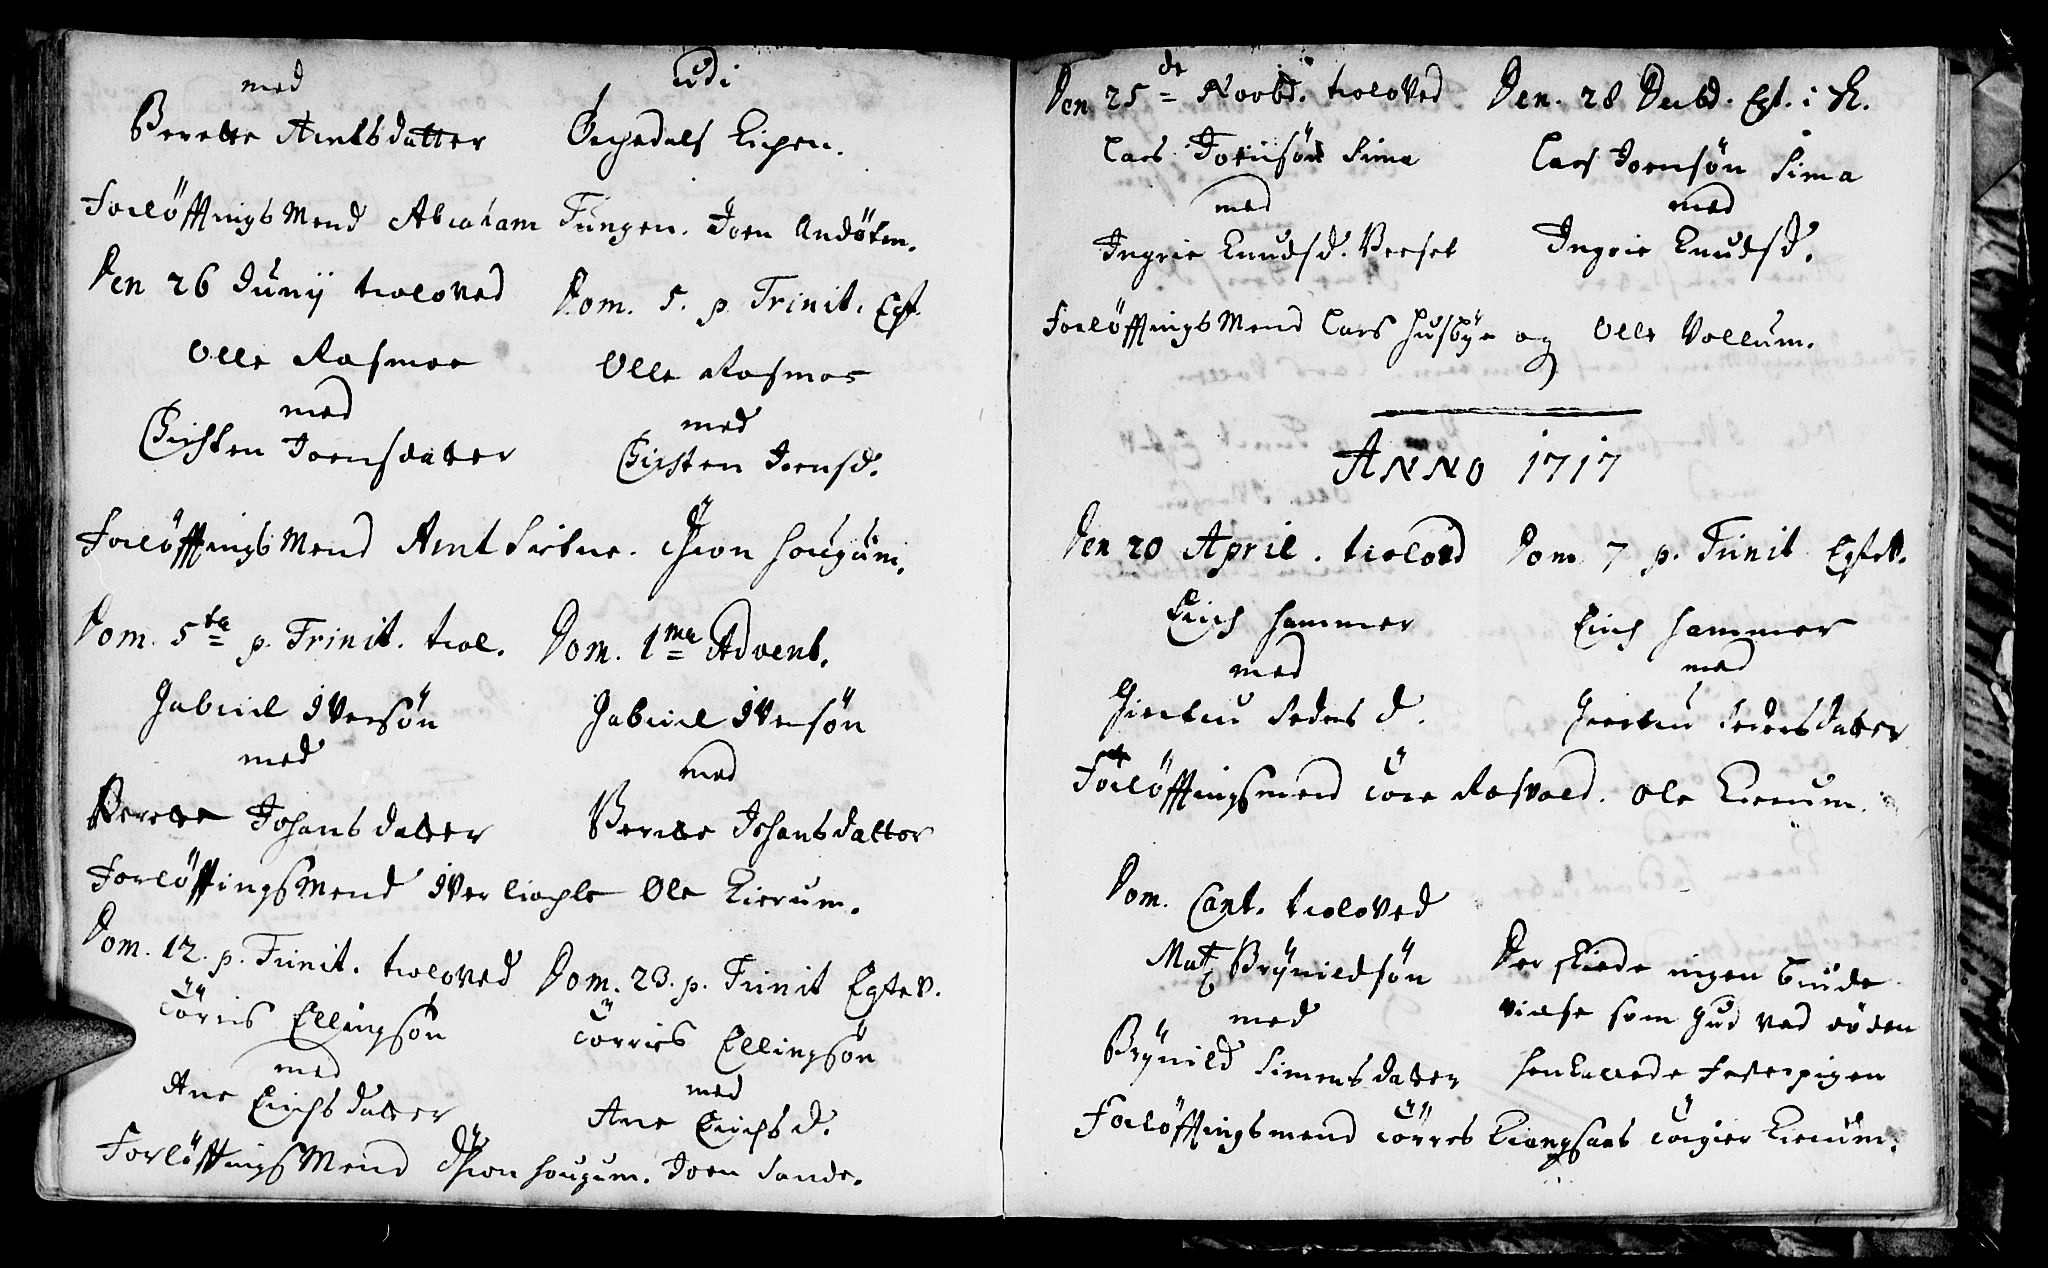 med
Berette Arntsdatter
udi
Ørchedals Kirchen.
Forlöfftings Mend Abraham Tungen. Joen Andöten.
Den 26 Junij troloved
Olle Rosmoe
med
Kirsten Joensdatter
Dom. 5. p. Trinit. Egt.
Olle Rosmoe
med
Kirsten Joensd.
Forlöfftings Mend Arnt houguum.
Dom. 5ta p. Trinit. trol.
Gabriel Iversön
med
Berette Johansdatter
Dom. 1ma Advent.
Gabriel Iversön
med
Berette Johansdatter
Forlöfftings Mend Iver Ole Kierum.
Dom. 12. p. Trinit. troloved
Törris Ellingsön
med
Ane Erichsdatter
Dom. 23. p. Trinit Egtev.
Törris Ellingsön
med
Ane Erichsd.
Forlöfftings Mend hougum. Joen Sande.
Den 25de Novbd. troloved
Lars Joensön Sima
med
Ingrie Knudsd. Verset
Den. 28 Decbd. Egt. i K.
Lars Joensön Sima
med
Ingrie Knudsd.
Forlöfftings Mend Lars Husbye og Olle Vollum.
ANNO 1717
Den 20 April. trolovd
Erich Hammer
med
Giertru Peders d.
Dom 7 p. Trinit Egtev.
Erich Hammer
med
Giertru Pedersdatter
Forlöfftingsmend Tore Rosvold. Ole Kierum.
Dom. Cant. troloved
Brÿnildsön
med
Brÿnild Simensdatter
Der skiede ingen Brude
vielse som Gud ved döden
henkallede Festepigen
Forlöfftingsmend Törres Torgier Kierum.